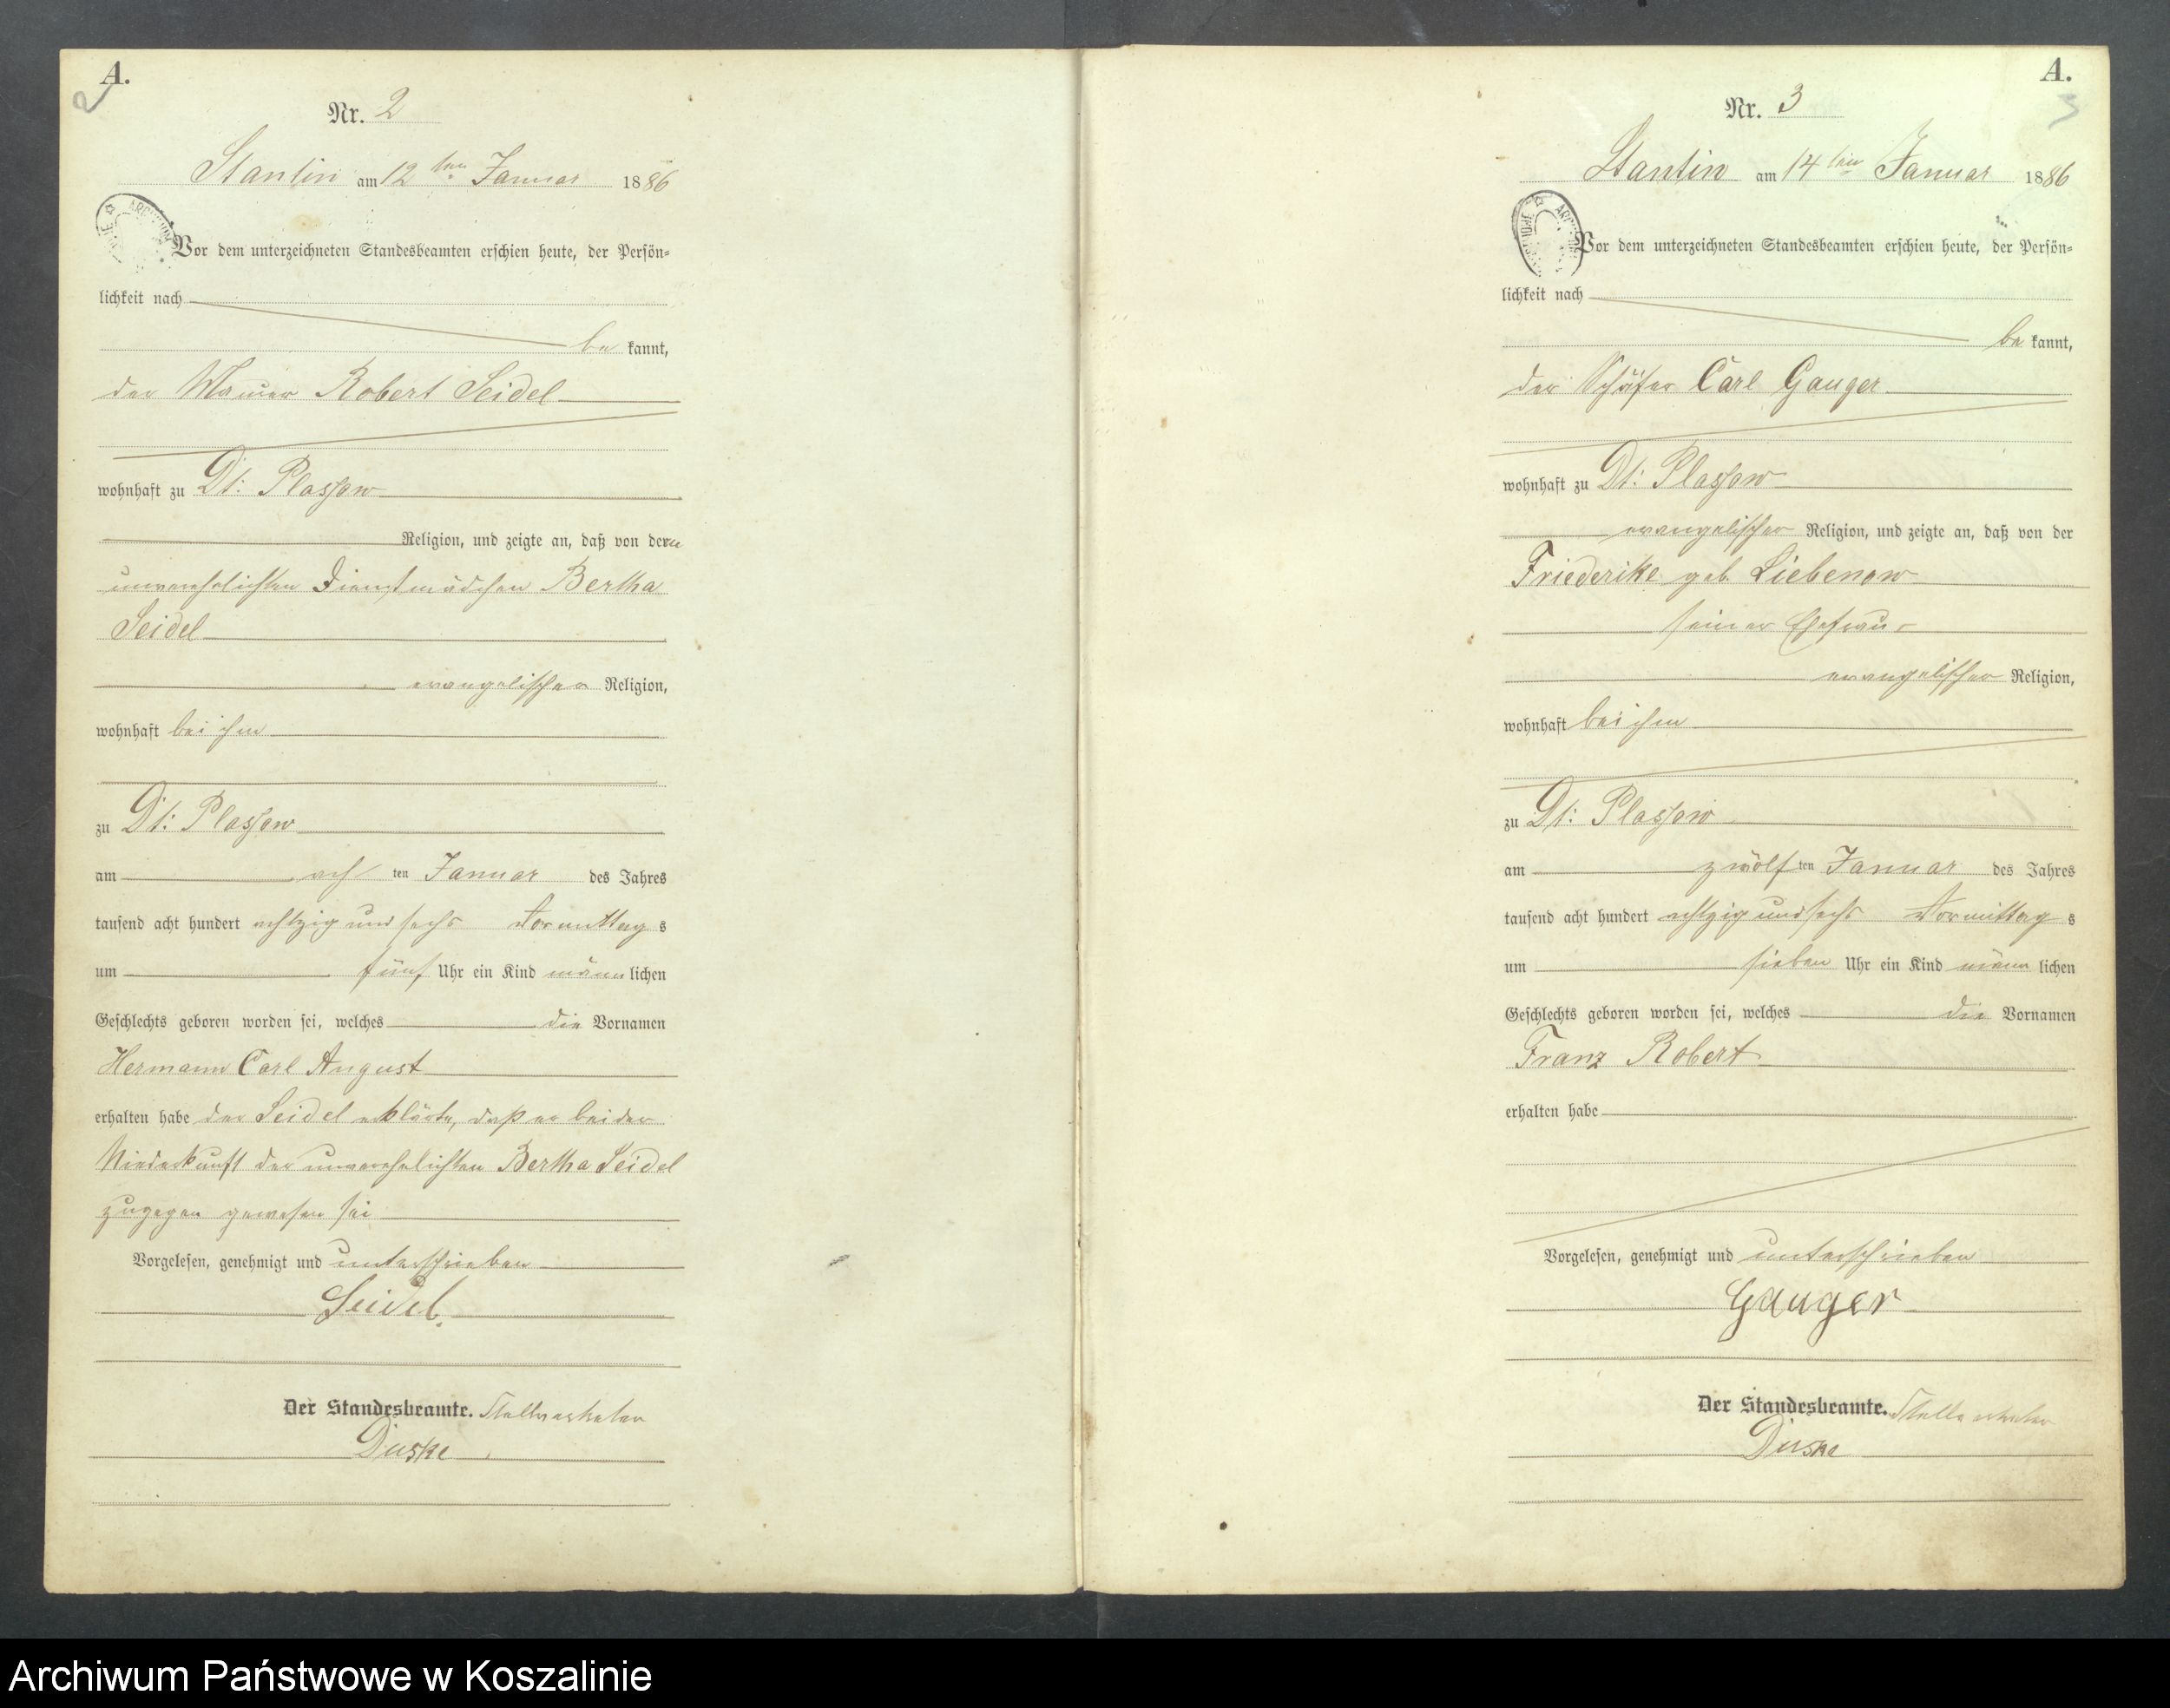 A.
2
Nr. 2
Stantin am 12ten Januar 1886
Vor dem unterzeichneten Standesbeamten erschien heute, der Persön=
lichkeit nach
be kannt,
der Maurer Robert Seidel
wohnhaft zu Dt: Plassow
Religion, und zeigte an, daß von der
unverehelichten Dienstmädchen Bertha
Seidel
evangelischer Religion,
wohnhaft bei ihm
zu Dt: Plassow
am acht ten Januar des Jahres
tausend acht hundert achtzig und sechs Vormittag s
um fünf Uhr ein Kind männlichen
Geschlechts geboren worden sei, welches die Vornamen
Hermann Carl August
erhalten habe der Seidel erklärte, daß er bei der
Niederkunft der unverehelichten Bertha Seidel
zugegen gewesen sei
Vorgelesen, genehmigt und unterschrieben
Seidel.
Der Standesbeamte. Stellvertreter
Duske
A.
3
Nr. 3
Stantin am 14ten Januar 1886
Vor dem unterzeichneten Standesbeamten erschien heute, der Persön=
lichkeit nach
be kannt,
der Schäfer Carl Gauger
wohnhaft zu Dt: Plassow
evangelischer Religion, und zeigte an, daß von der
Friederike geb. Liebenow
seiner Ehefrau
evangelischer Religion,
wohnhaft bei ihm
zu Dt: Plassow
am zwölften Januar des Jahres
tausend acht hundert achtzig und sechs Vormittag s
um sieben Uhr ein Kind männ lichen
Geschlechts geboren worden sei, welches die Vornamen
Franz Robert
erhalten habe
Vorgelesen, genehmigt und unterschrieben
Gauger
Der Standesbeamte. Stellvertreter
Duske
Archiwum Państwowe w Koszalinie